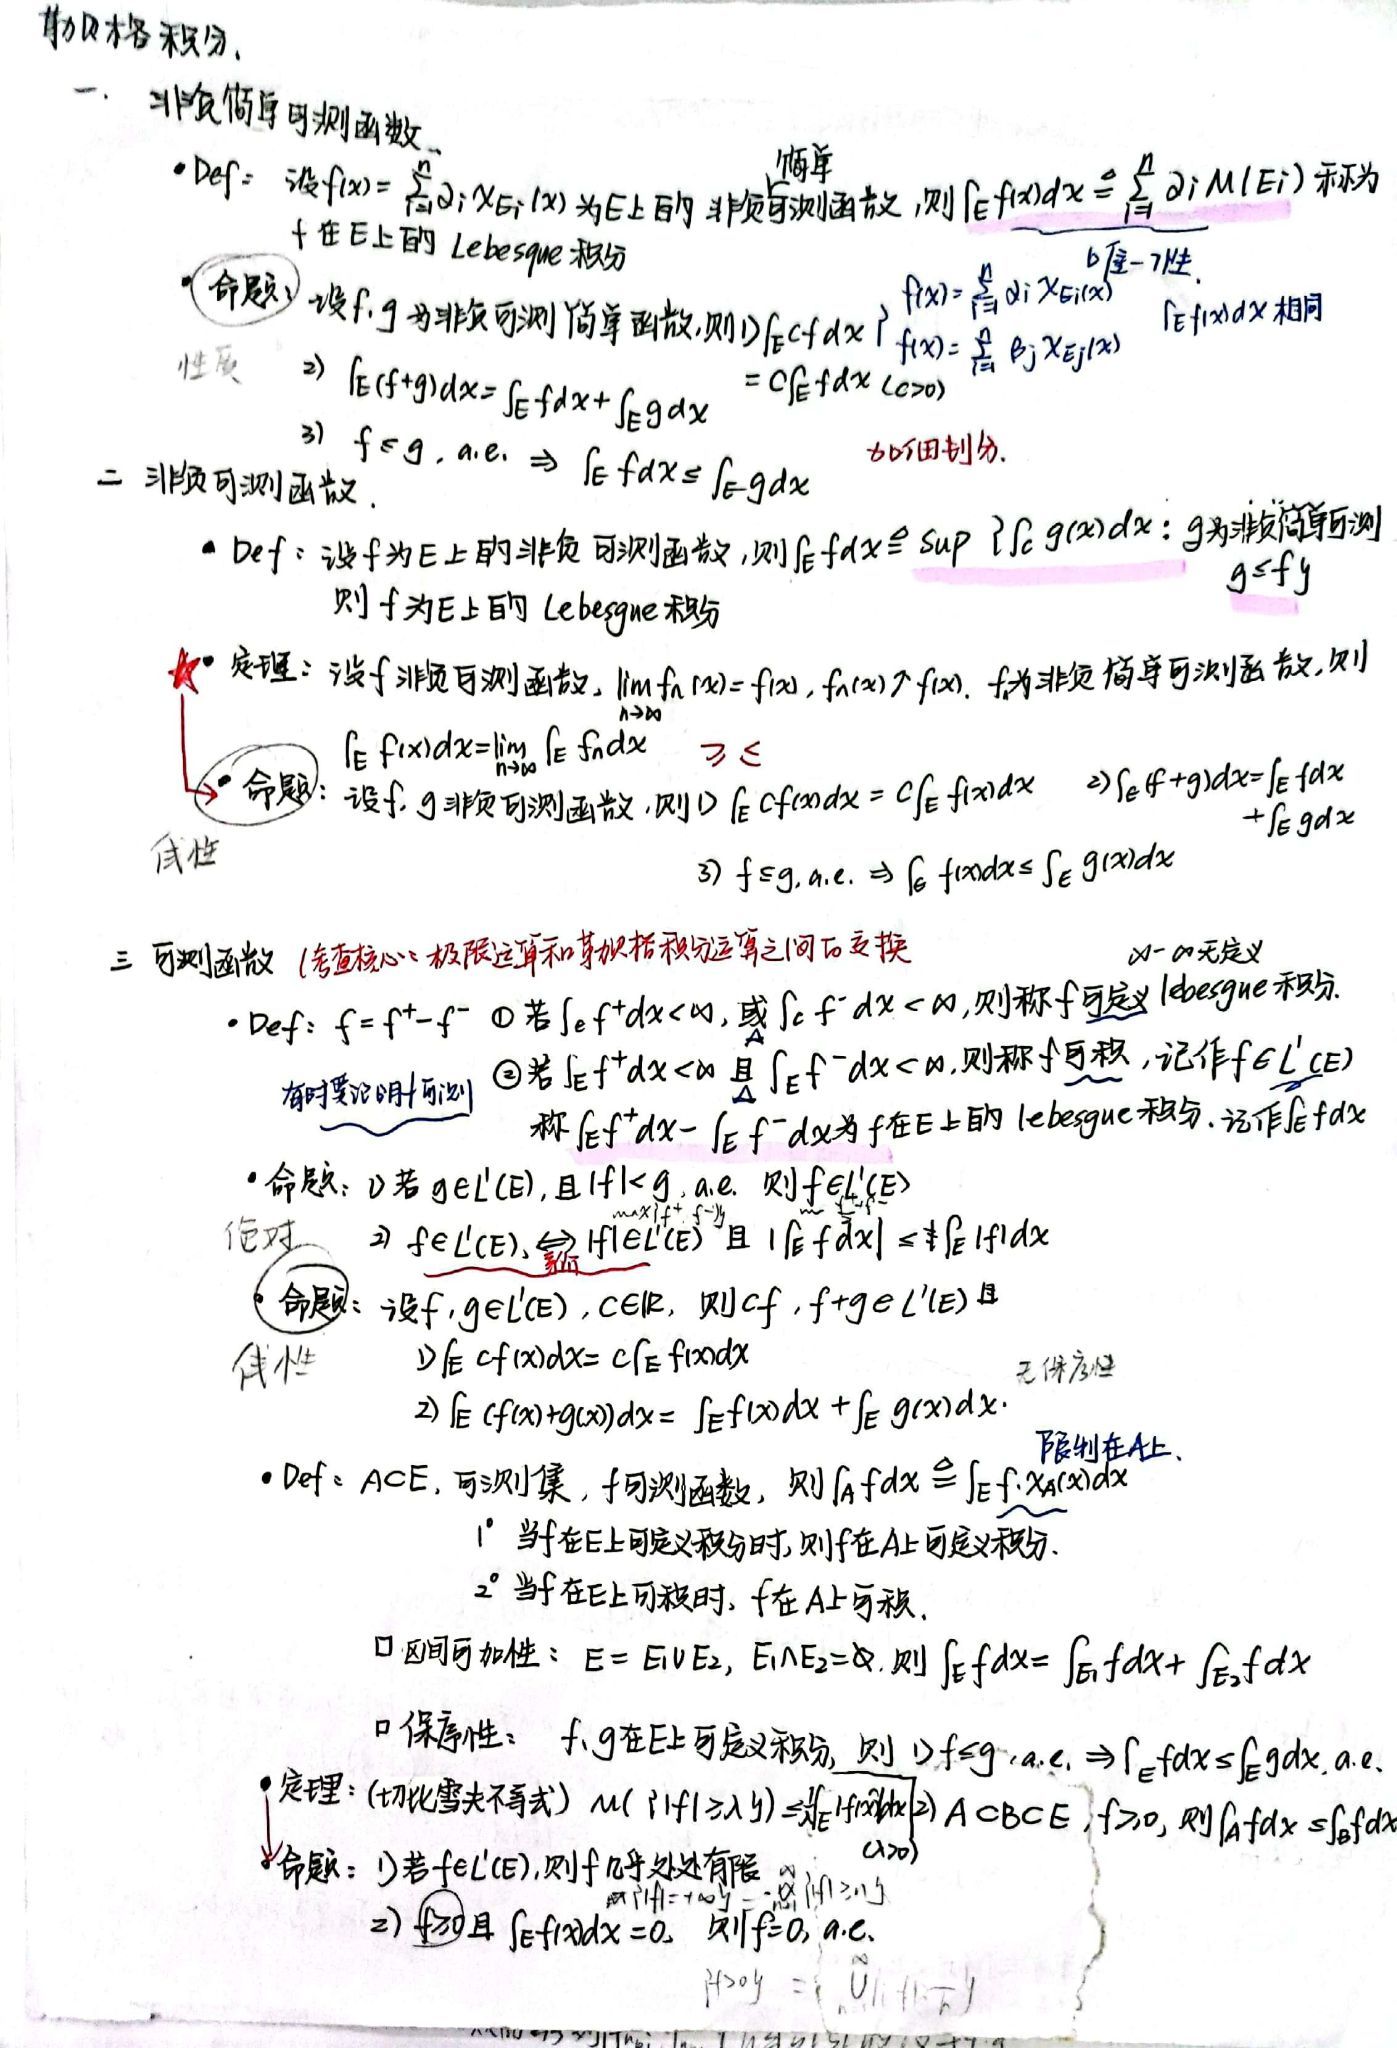 勒贝格积分.
一. 非负简单可测函数.
• Def: 设f(x)=∑_{i=1}^{n} α_i χ_{E_i}(x) 为E上的 非负简单可测函数,则∫_E f(x)dx ≜ ∑_{i=1}^{n} α_i M(E_i) 称为
f 在E上的 Lebesgue 积分
唯一性.
• 命题: 设f,g为非负可测简单函数,则1)∫_E cfdx = c∫_E fdx (c>0)
{ f(x)=∑_{i=1}^{n} α_i χ_{E_i}(x)
f(x)=∑_{i=1}^{n} β_j χ_{E_j}(x)
∫_E f(x)dx 相同
性质
2) ∫_E (f+g)dx=∫_E fdx+∫_E gdx
3) f≤g, a.e. ⇒ ∫_E fdx≤∫_E gdx
加细划分.
二 非负可测函数.
• Def: 设f为E上的非负可测函数,则∫_E fdx≜ sup {∫_E g(x)dx: g为非负简单可测
g≤f}
则 f 为E上的 Lebesgue 积分
☆ • 定理: 设f非负可测函数, lim_{n→∞} f_n(x)=f(x), f_n(x)↗f(x). f_n为非负简单可测函数,则
∫_E f(x)dx=lim_{n→∞} ∫_E f_n dx ≥ ≤
• 命题: 设f,g非负可测函数,则1) ∫_E cf(x)dx = c∫_E f(x)dx 2)∫_E(f+g)dx=∫_E fdx
+∫_E gdx
线性
3) f≤g, a.e. ⇒ ∫_E f(x)dx≤∫_E g(x)dx
三 可测函数 (考查核心: 极限运算和勒贝格积分运算之间的交换
∞-∞无定义
• Def: f=f⁺-f⁻ ① 若∫_E f⁺dx<∞, 或∫_E f⁻dx<∞,则称f可定义lebesgue积分.
② 若∫_E f⁺dx<∞ 且∫_E f⁻dx<∞,则称f可积,记作f∈L¹(E)
有时要证明f可测
称∫_E f⁺dx-∫_E f⁻dx为f在E上的 lebesgue积分.记作∫_E fdx
• 命题: 1) 若g∈L¹(E),且|f|<g, a.e. 则f∈L¹(E)
max{f⁺, f⁻}
绝对
2) f∈L¹(E), ⇔ |f|∈L¹(E) 且 |∫_E fdx| ≤ ∫_E |f|dx
等价
• 命题: 设f,g∈L¹(E), c∈ℝ, 则cf, f+g∈L¹(E)且
线性
1)∫_E cf(x)dx= c∫_E f(x)dx
无保序性
2)∫_E (f(x)+g(x))dx= ∫_E f(x)dx+∫_E g(x)dx.
限制在A上.
• Def: A⊂E, 可测集, f可测函数, 则∫_A fdx ≜∫_E f·χ_A(x)dx
1° 当f在E上可定义积分时,则f在A上可定义积分.
2° 当f在E上可积时, f在A上可积.
□ 区间可加性: E=E₁∪E₂, E₁∩E₂=∅. 则∫_E fdx=∫_{E₁} fdx+∫_{E₂} fdx
□ 保序性: f,g在E上可定义积分, 则 1) f≤g, a.e. ⇒∫_E fdx≤∫_E gdx, a.e.
2) A⊂B⊂E, f≥0, 则∫_A fdx≤∫_B fdx
• 定理: (切比雪夫不等式) M({|f|≥λ})≤1/λ∫_E |f(x)|dx
(λ>0)
• 命题: 1)若f∈L¹(E),则f几乎处处有限
{|f|=+∞} = ∩_{n=1}^{∞} {|f|≥n}
2) f≥0且∫_E f(x)dx=0, 则f=0, a.e.
{f>0} =